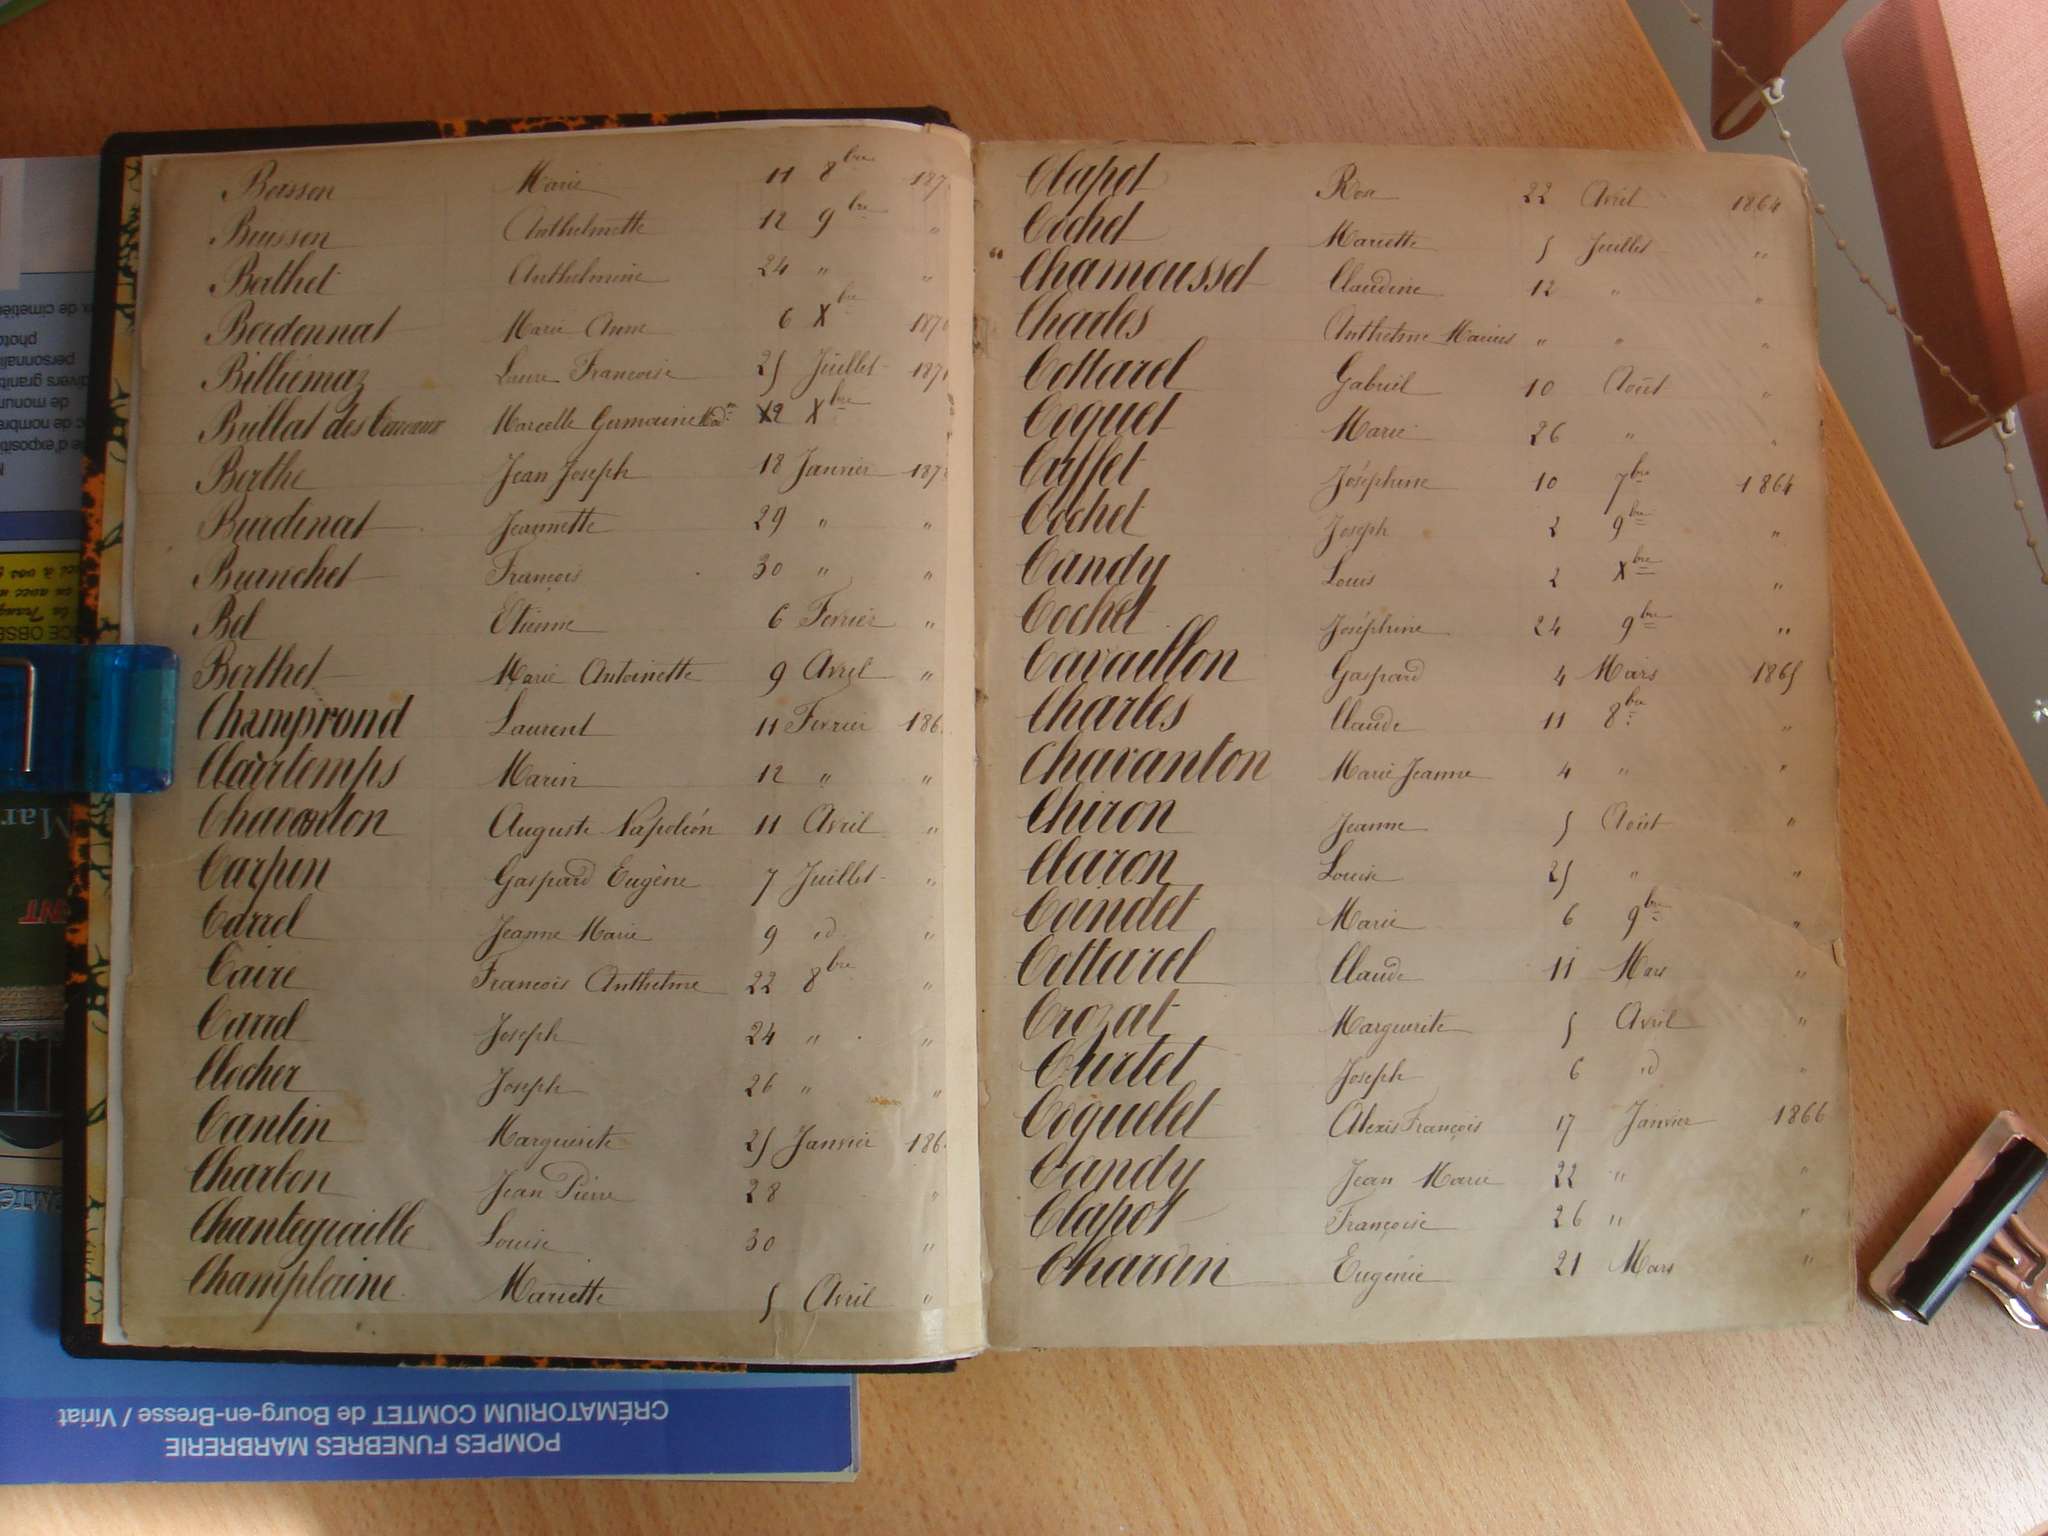 Buisson Marie 11 8bre 187
Buisson Anthelmette 12 9bre "
Berthet Anthelmine 24 " "
Berdennat Marie Anne 6 Xbre 187
Billiémaz Laure Françoise 25 Juillet 187
Brillat des Marcelle Germaine X2 Xbre
Berthe Jean Joseph 18 Janvier 187
Burdinat Jeannette 29 " "
Burnchet François 30 " "
Bel Etienne 6 Fevrier "
Berthet Marie Antoinette 9 Avril "
Champrond Laurent 11 Fevrier 186
Clairtemps Marin 12 " "
Chavanton Auguste Napoléon 11 Avril "
Carpin Gaspard Eugène 7 Juillet "
Carrel Jeanne Marie 9 id "
Caire François Anthelme 22 8bre "
Carrel Joseph 24 " "
Clocher Joseph 26 " "
Cantin Marguerite 25 Janvier 186
Charlon Jean Pierre 28 "
Chantequaille Louise 30 "
Champlaine Mariette 5 Avril "
Clapot Rose 22 Avril 1864
Cochet Mariette 5 Juillet "
" Chamousset Claudine 12 " "
Charles Anthelme Marius " " "
Cottarel Gabriel 10 Août "
Coquet Marie 26 " "
Joséphine 10 7bre 1864
Cochet Joseph 2 9bre "
Candy Louis 2 Xbre "
Cochet Joséphine 24 9bre "
Cavaillon Gaspard 4 Mars 1865
Charles Claude 11 8bre "
Chavanton Marie Jeanne 4 " "
Chiron Jeanne 5 Août "
Claron Louise 25 " "
Caindet Marie 6 9bre "
Cottarel Claude 11 Mars "
Crozat Marguerite 5 Avril "
Curtet Joseph 6 id "
Coquelet Alexis François 17 Janvier 1866
Candy Jean Marie 22 " "
Clapot Françoise 26 " "
Charvin Eugénie 21 Mars "
POMPES FUNEBRES MARBRERIE
CRÉMATORIUM COMTET de Bourg-en-Bresse / Viriat